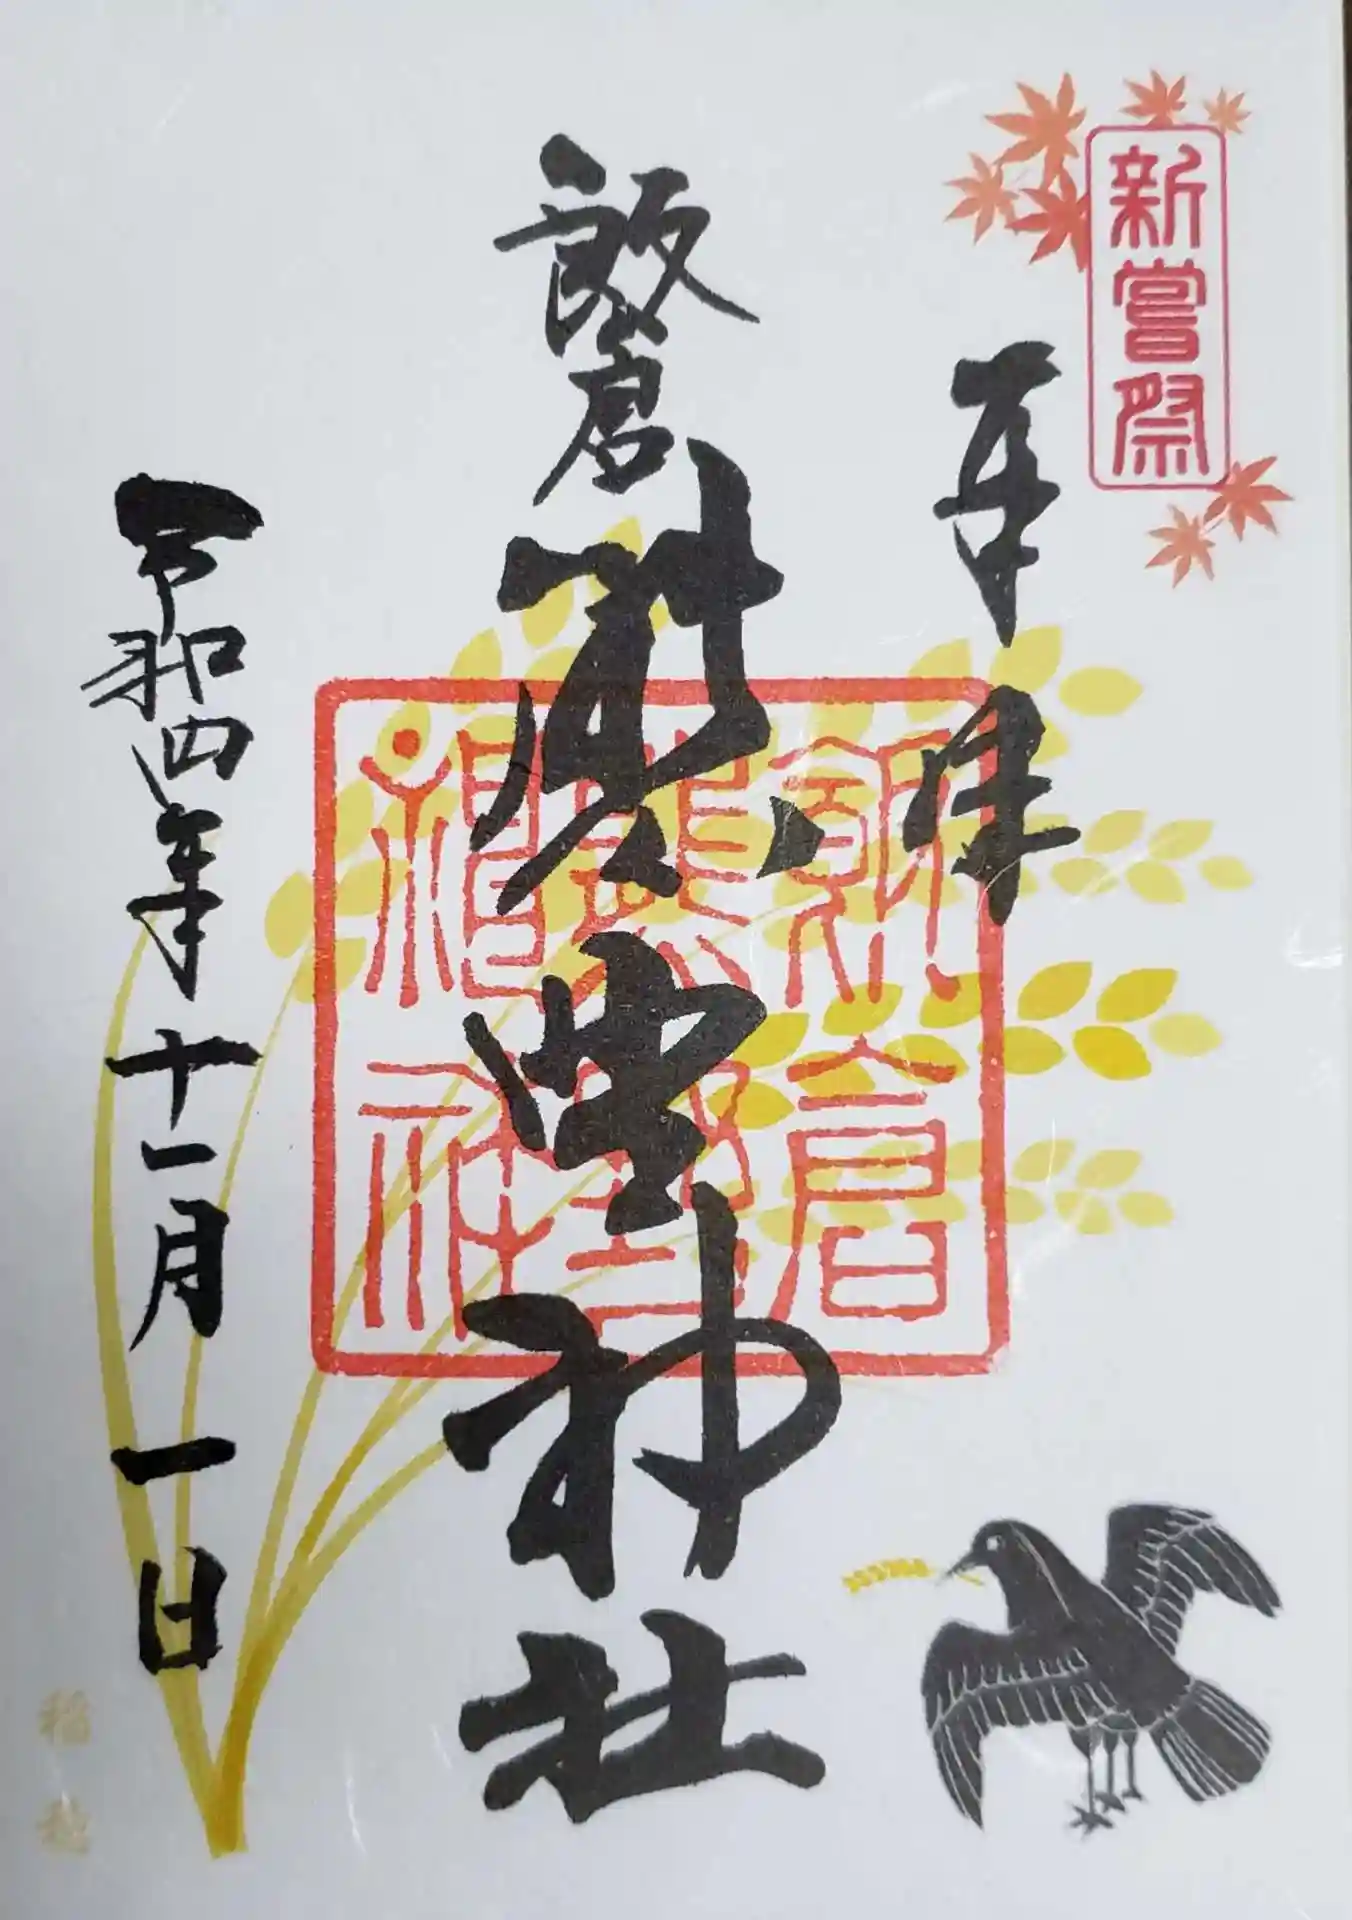 新嘗祭
奉拝
飯倉
熊野神社
飯倉熊野神社
令和四年十一月一日
稲穂